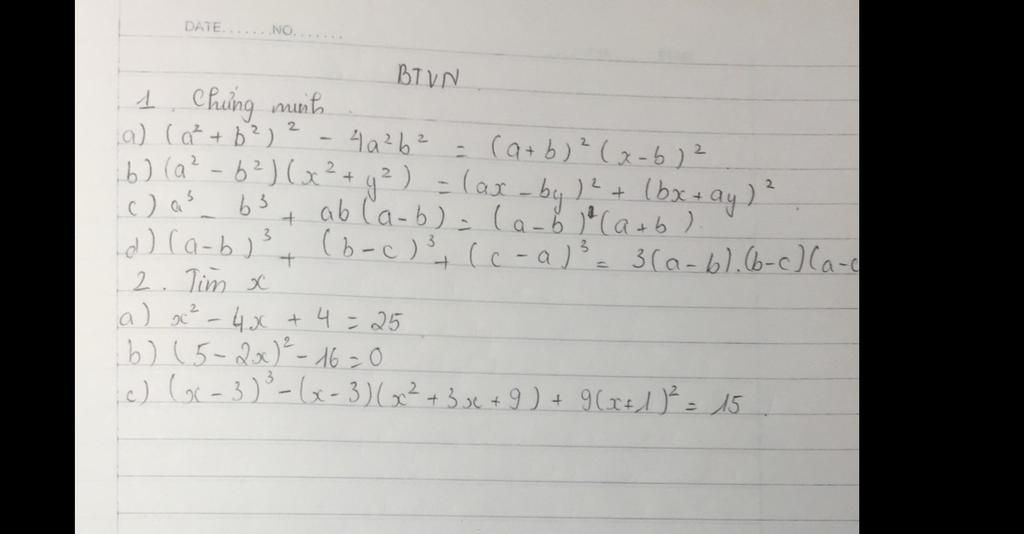 DATE.......NO.......
BTVN
1. Chứng minh.
a) (a² + b²)² - 4a²b² = (a+b)² (x-b)²
b) (a² - b²)(x² + y²) = (ax - by)² + (bx + ay)²
c) a³ - b³ + ab(a-b) = (a-b) (a+b).
d) (a-b)³ + (b-c)³ + (c-a)³ = 3(a-b).(b-c)(a-c
2. Tìm x
a) x² - 4x + 4 = 25
b) (5 - 2x)² - 16 = 0
c) (x - 3)³ - (x - 3)(x² + 3x + 9) + 9(x+1)² = 15.